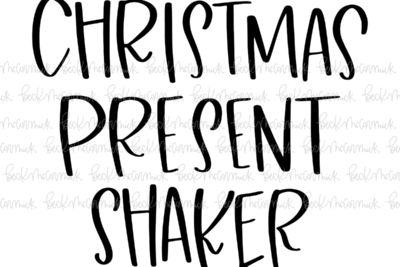 CHRISTMAS
PRESENT
SHAKER